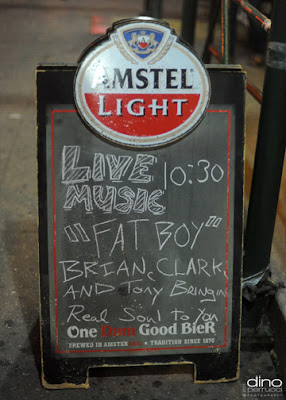 AMSTEL
LIGHT
LIVE 10:30
MUSIC
"FAT BOY"
BRIAN, CLARK,
AND Tony Bringin
Real Soul to You
One Dam Good BieR
BREWED IN AMSTERDAM • TRADITION SINCE 1870
dino
perrucci